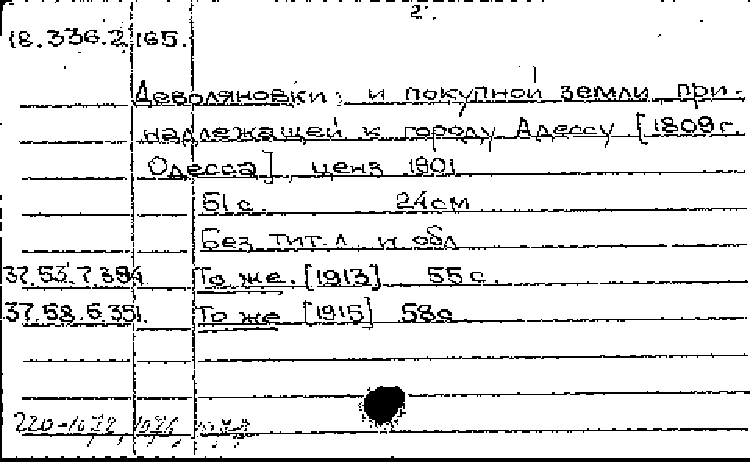 2.
18.336.2.165.
Деволяновки; и покупной земли при-
надлежащей к городу Адессу [1809г.
Одесса], ценз 1901
51 с. 24см
Без тит.л. и обл
37.53.7.394 То же. [1913] 55 с.
37.58.5.351. То же [1915] 58с
220-1072, 1076,